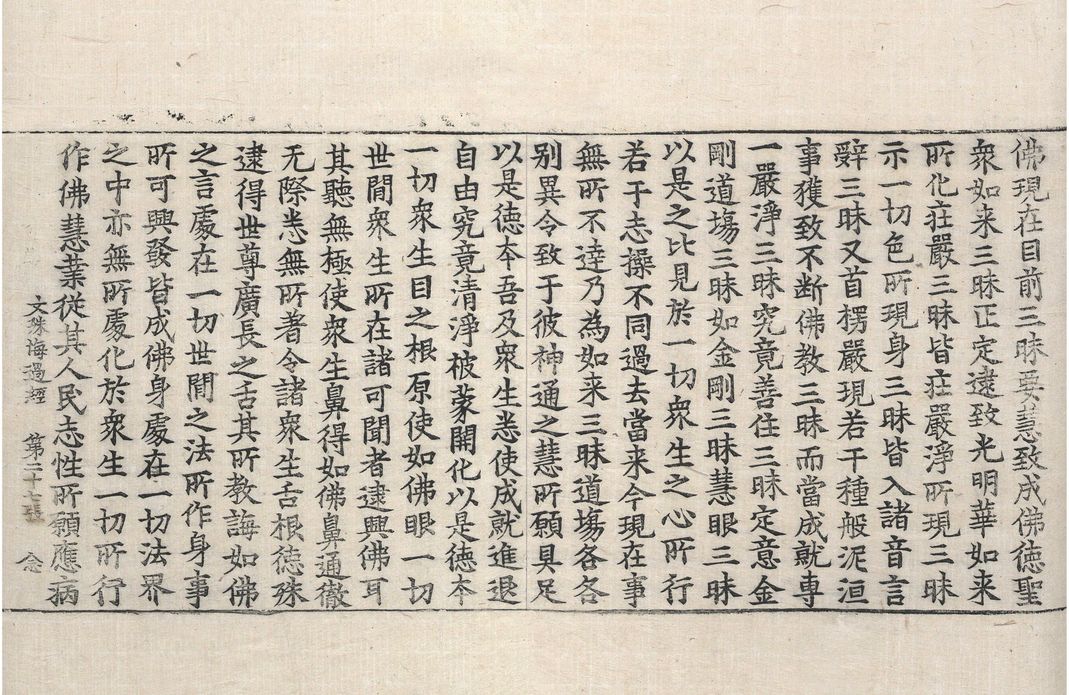 佛現在目前三昧要慧致成佛德聖
衆如来三昧正定逮致光明華如来
所化莊嚴三昧皆莊嚴淨所現三昧
示一切色所現身三昧皆入諸音言
辤三昧又首楞嚴現若干種般泥洹
事獲致不断佛教三昧而當成就專
一嚴淨三昧究竟善住三昧定意金
剛道塲三昧如金剛三昧慧眼三昧
以是之比見於一切衆生之心所行
若干志操不同過去當来今現在事
無所不達乃為如来三昧道塲各各
别異令致于彼神通之慧所願具足
以是德夲吾及衆生悉使成就進退
自由究竟清淨被蒙開化以是德夲
一切衆生目之根原使如佛眼一切
世間衆生所在諸可聞者逮興佛耳
其聽無極使衆生鼻得如佛鼻通徹
无際悉無所著令諸衆生舌根德殊
逮得世尊廣長之舌其所教誨如佛
之言處在一切世間之法所作身事
所可興發皆成佛身處在一切法界
之中亦無所處化於衆生一切所行
作佛慧業從其人民志性所願應病
文殊悔過經 第二十七張 念